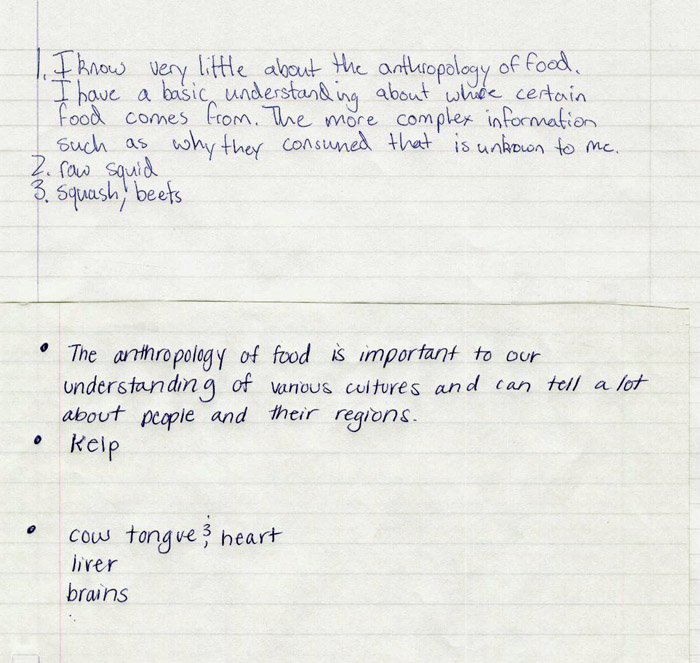 1. I know very little about the anthropology of food.
I have a basic understanding about where certain
food comes from. The more complex information
such as why they consumed that is unkown to me.
2. raw squid
3. squash, beets
• The anthropology of food is important to our
understanding of various cultures and can tell a lot
about people and their regions.
• Kelp
• cow tongue & heart
liver
brains